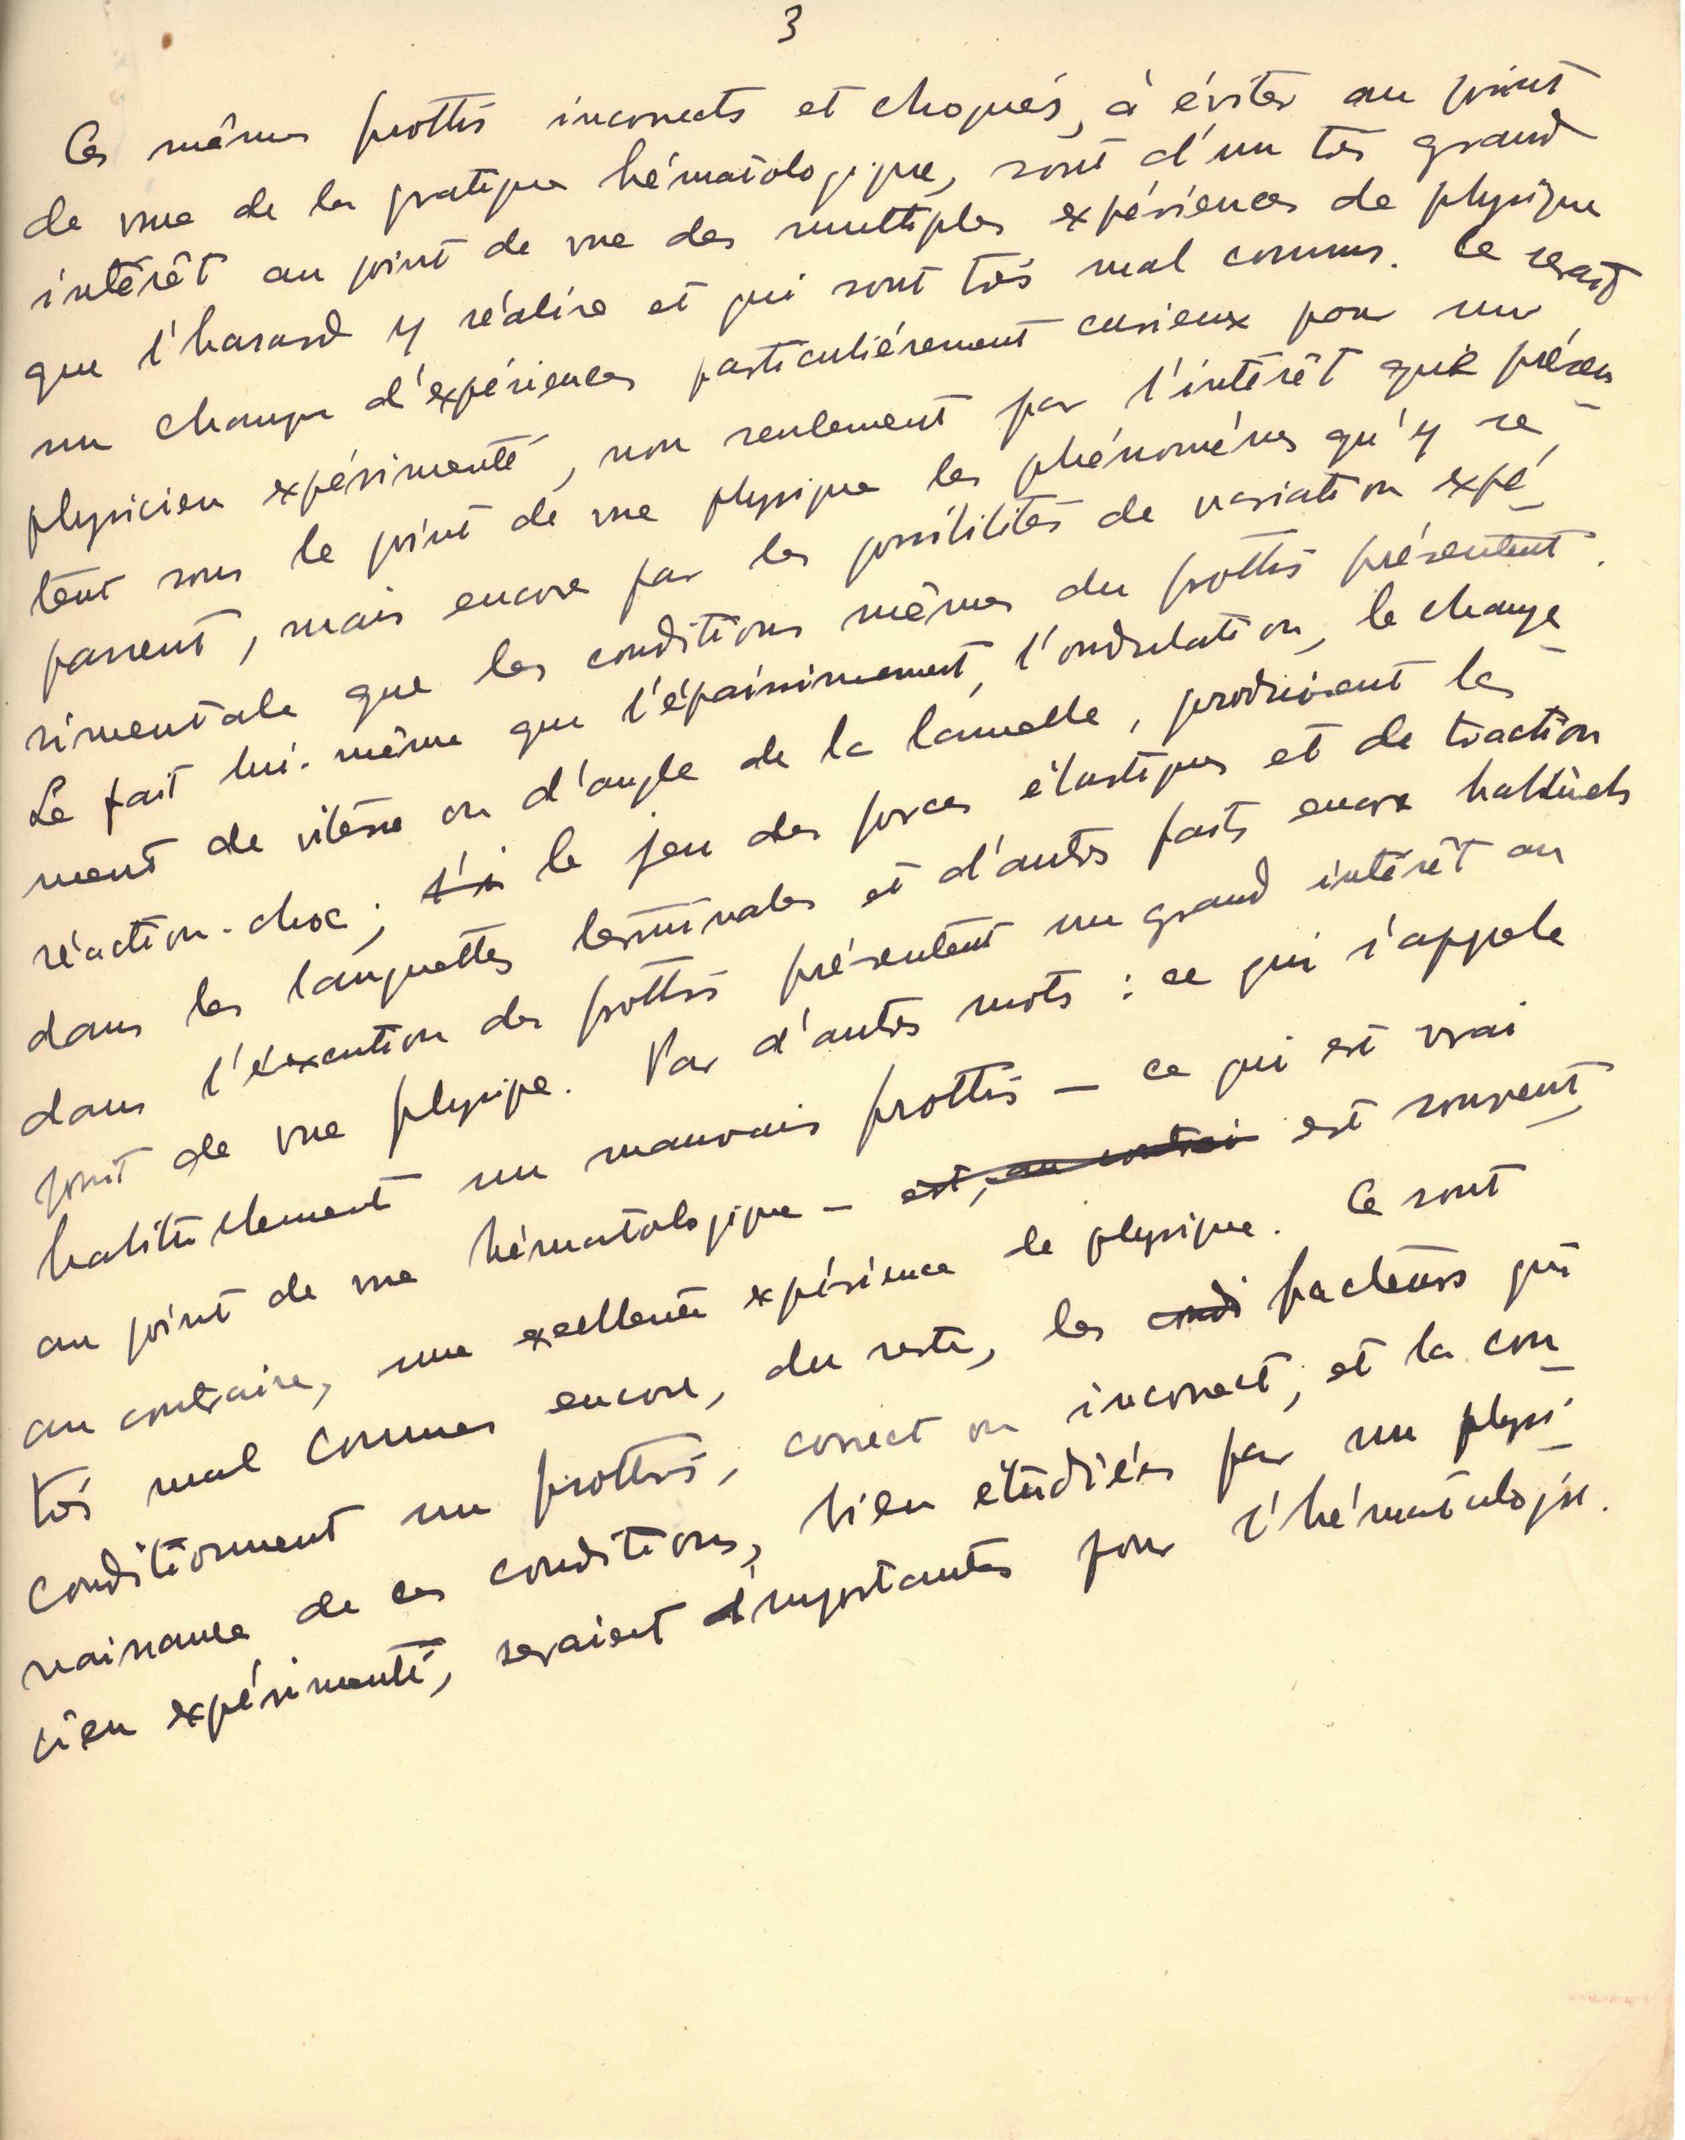 3
Ces mêmes frottis incorrects et choqués, à éviter au point
de vue de la pratique hématologique, sont d'un très grand
intérêt au point de vue des multiples expériences de physique
que l'hasard y réalise et qui sont très mal connus. Ce serait
un champ d'expériences particulièrement curieux pour un
physicien expérimenté, non seulement par l'intérêt que présen
tent sous le point de vue physique les phénomènes qu'y se
passent, mais encore par les possibilités de variation expé
rimentale que les conditions mêmes du frottis présentent.
Le fait lui-même que l'épaississement, l'ondulation, le change
ment de vitesse ou d'angle de la lamelle, produisent les
réaction-choc; le jeu des forces élastiques et de traction
dans les languettes terminales et d'autres faits encore habituels
dans l'éxecution des frottis présentent un grand intérêt au
point de vue physique. Par d'autres mots : ce qui s'appele
habituellement un mauvais frottis — ce qui est vrai
au point de vue hématologique — est, au contrai est souvent,
au contraire, une excellente expérience de physique. Ce sont
très mal connues encore, du reste, les condi facteurs qui
conditionnent un frottis, correct ou incorrect; et la con
naissance de ces conditions, bien étudiées par un physi
cien expérimenté, seraient importantes pour l'hématologie.